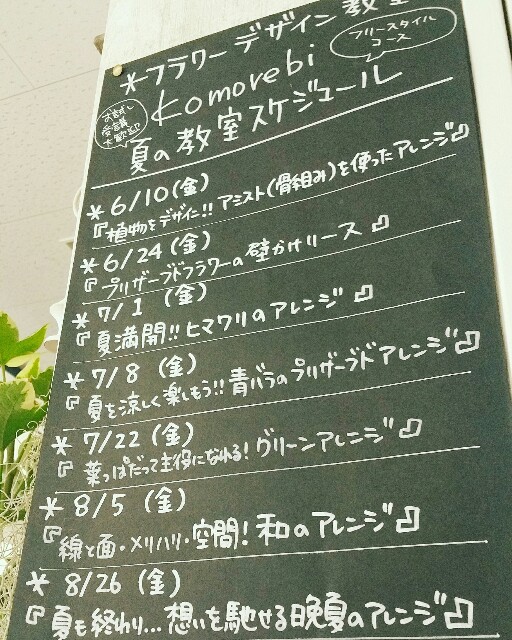 *フラワーデザイン教室
フリースタイル
コース
komorebi
お試し
受講
大歓迎
夏の教室スケジュール
*6/10(金)
『植物をデザイン!! アミスト(骨組み)を使ったアレンジ』
*6/24(金)
『プリザーブドフラワーの壁かけリース』
*7/1(金)
『夏満開!! ヒマワリのアレンジ』
*7/8(金)
『夏を涼しく楽しもう!! 青バラのプリザーブドアレンジ』
*7/22(金)
『葉っぱだって主役になれる! グリーンアレンジ』
*8/5(金)
『線と面・メリハリ・空間! 和のアレンジ』
*8/26(金)
『夏も終わり...想いを馳せる晩夏のアレンジ』